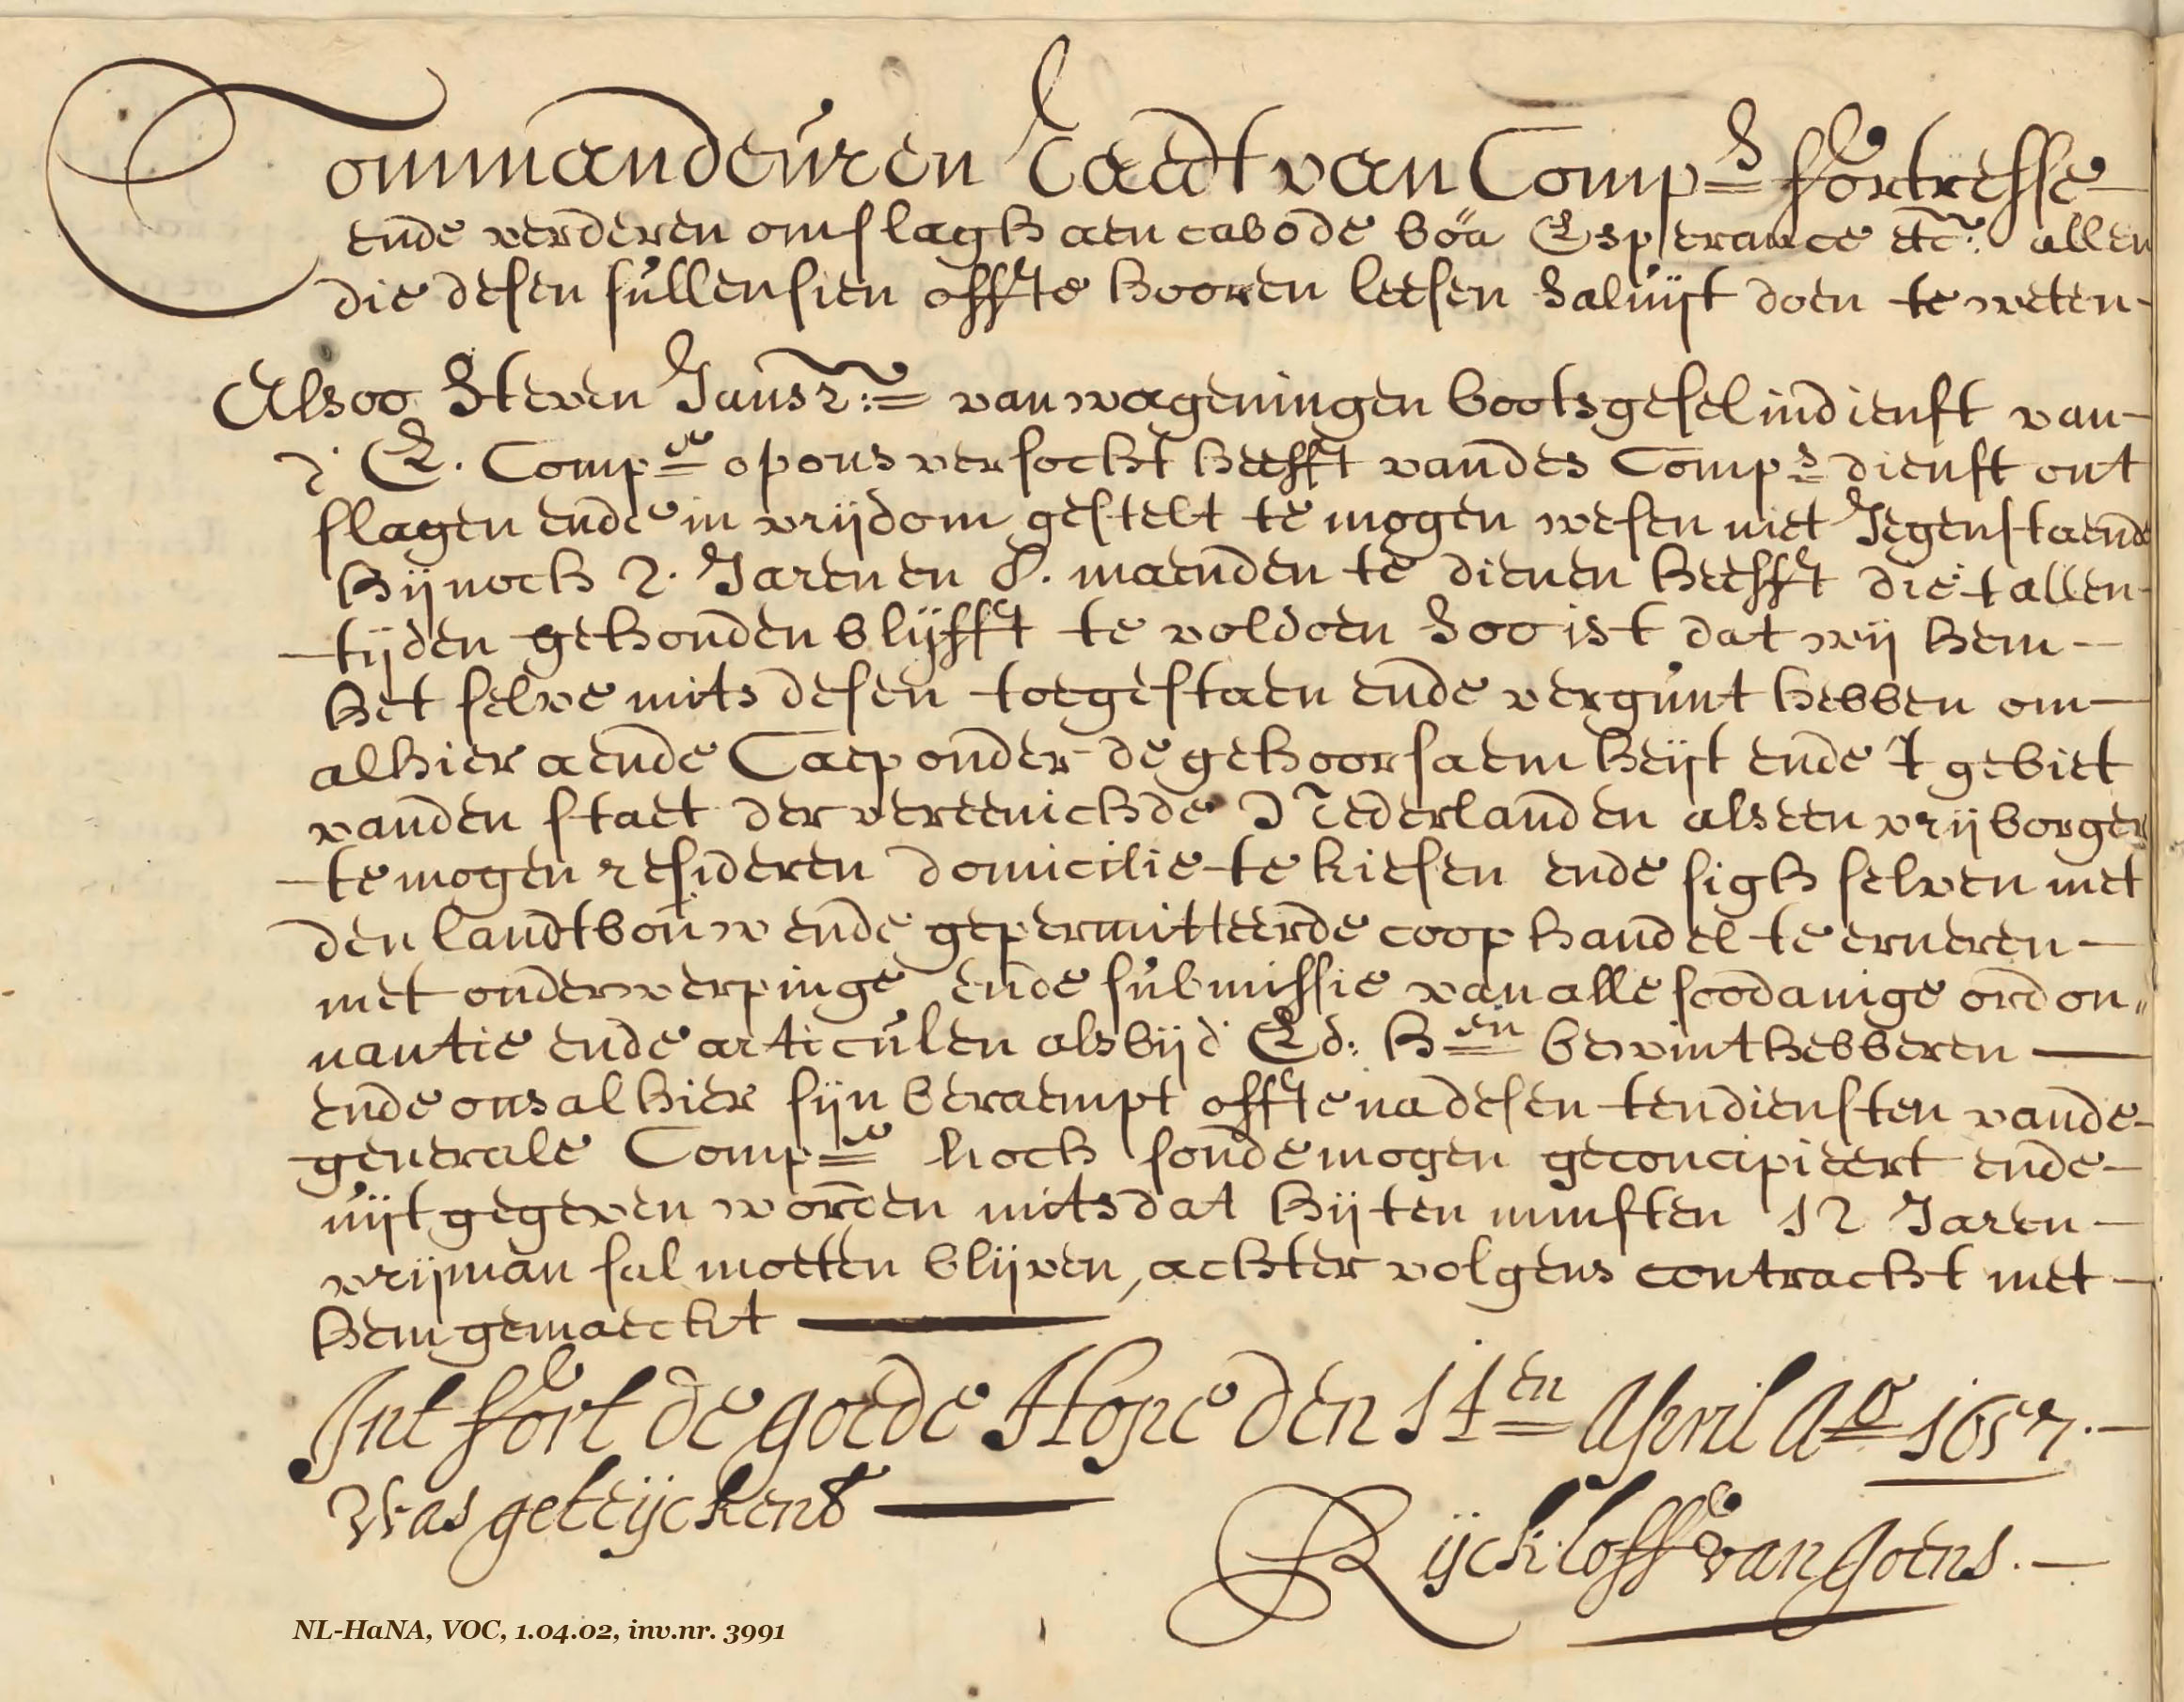 Commandeur en Raadt van Comp.s fortresse
ende verderen omslagh aen cabo de boā Esperance etc.a allen
die desen sullen sien offte hooren leesen Saluijt doen te weten
Alsoo Steven Jansz: van wageningen bootsgesel in dienst van
d' E. Comp.e op ons versocht heefft van des Comp.s dienst ont
slagen ende in vrijdom gestelt te mogen wesen niet Jegenstaende
hij noch 2. Jaren en 8. maenden te dienen heefft die t allen
tijden gehouden blijfft te voldoen Soo ist dat wij hem
het selve mits desen toegestaen ende vergunt hebben om
alhier aende Caep onder de gehoorsaemheijt ende t gebiet
vanden staet der vereenichde Nederlanden als een vrijborger
te mogen resideren domicilie te kiesen ende sigh selven met
den landtbouw ende gepermitteerde coophandel te erneren
met onderwerpinge ende submissie van alle soodanige ordon„
nantie ende articulen als bij d' Ed: H.en bewinthebberen
ende ons alhier sijn beraempt offte na desen ten diensten vande
generale Comp.e noch soude mogen geconcipieert ende
uijtgegeven worden mits dat hij ten minsten 12 Jaren
vrijman sal moeten blijven, achtervolgens contracht met
hem gemaeckt
Int fort de goede Hope den 14en April Ao 1657.
Was geteijckent
Rijckloff van Goens.
NL-HaNA, VOC, 1.04.02, inv.nr. 3991